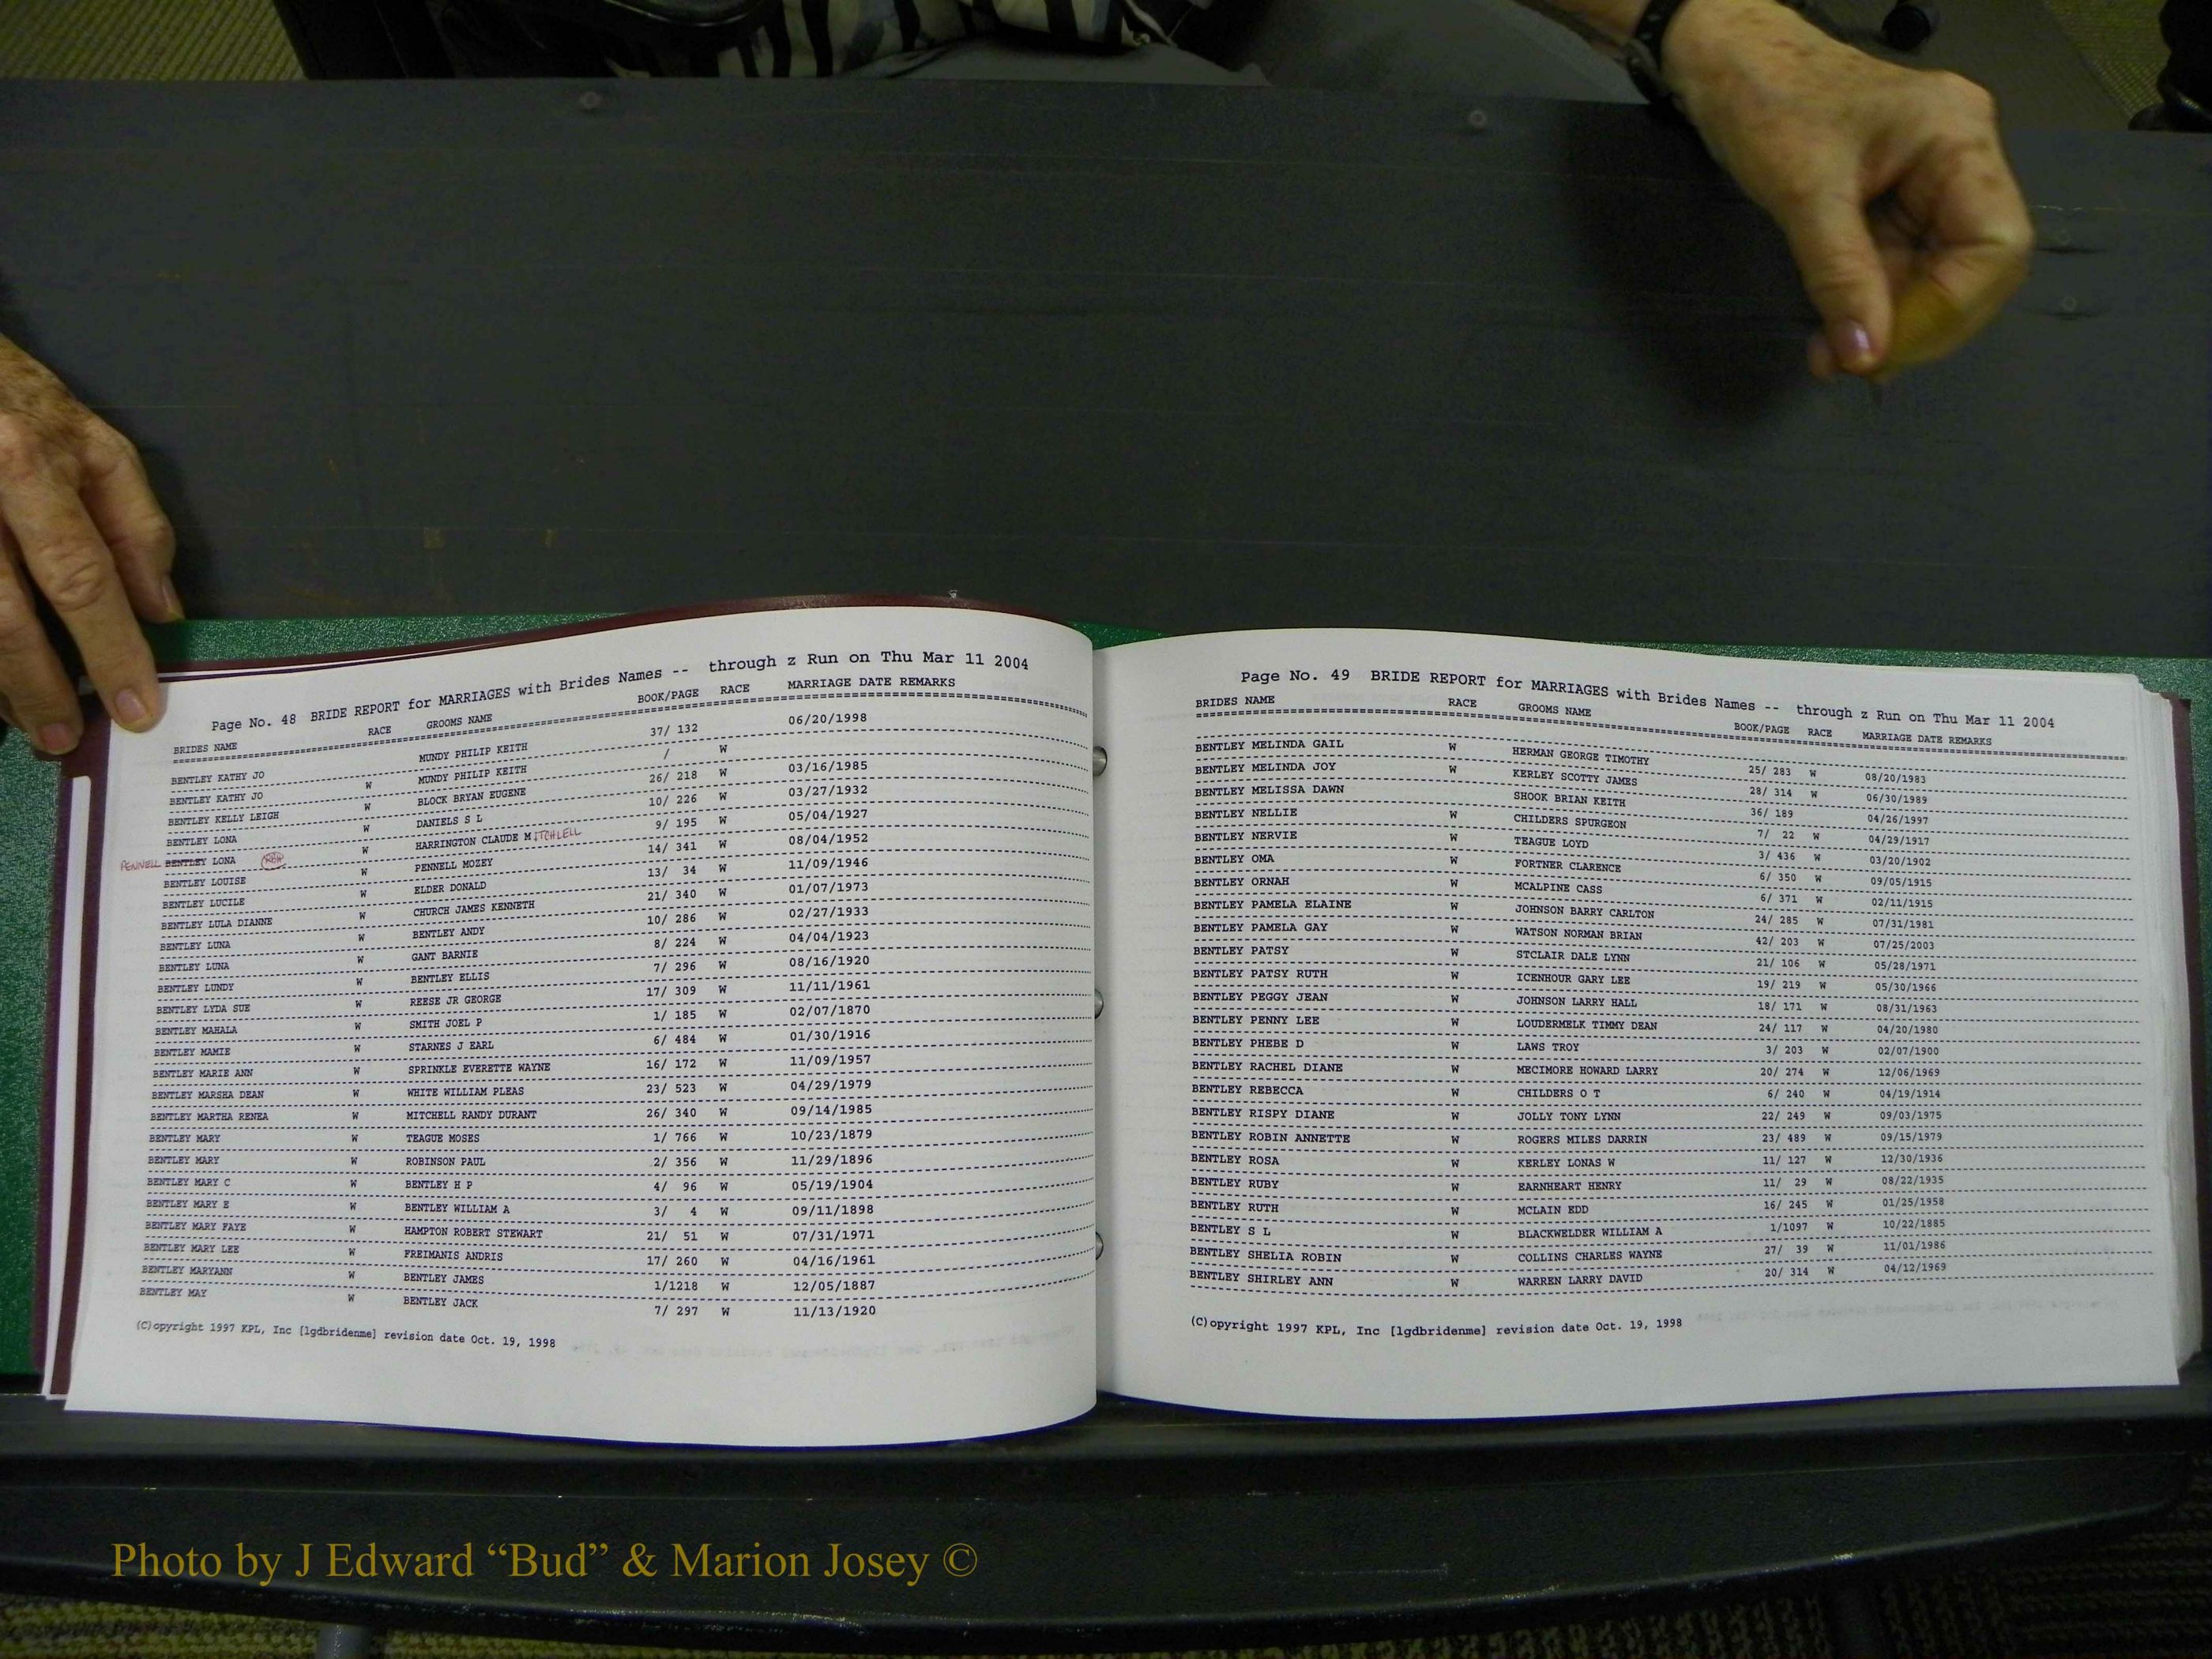 Page No. 48 BRIDE REPORT for MARRIAGES with Brides Names -- through z Run on Thu Mar 11 2004
BRIDES NAME RACE GROOMS NAME BOOK/PAGE RACE MARRIAGE DATE REMARKS
BENTLEY KATHY JO MUNDY PHILIP KEITH 37/ 132 06/20/1998
BENTLEY KATHY JO W MUNDY PHILIP KEITH / W
BENTLEY KELLY LEIGH W BLOCK BRYAN EUGENE 26/ 218 W 03/16/1985
BENTLEY LONA W DANIELS S L 10/ 226 W 03/27/1932
PENNELL BENTLEY LONA W HARRINGTON CLAUDE MITCHLELL 9/ 195 W 05/04/1927
BENTLEY LOUISE W PENNELL MOZEY 14/ 341 W 08/04/1952
BENTLEY LUCILE W ELDER DONALD 13/ 34 W 11/09/1946
BENTLEY LULA DIANNE W CHURCH JAMES KENNETH 21/ 340 W 01/07/1973
BENTLEY LUNA W BENTLEY ANDY 10/ 286 W 02/27/1933
BENTLEY LUNA W GANT BARNIE 8/ 224 W 04/04/1923
BENTLEY LUNDY W BENTLEY ELLIS 7/ 296 W 08/16/1920
BENTLEY LYDA SUE W REESE JR GEORGE 17/ 309 W 11/11/1961
BENTLEY MAHALA W SMITH JOEL P 1/ 185 W 02/07/1870
BENTLEY MAMIE W STARNES J EARL 6/ 484 W 01/30/1916
BENTLEY MARIE ANN W SPRINKLE EVERETTE WAYNE 16/ 172 W 11/09/1957
BENTLEY MARSHA DEAN W WHITE WILLIAM PLEAS 23/ 523 W 04/29/1979
BENTLEY MARTHA RENEA W MITCHELL RANDY DURANT 26/ 340 W 09/14/1985
BENTLEY MARY W TEAGUE MOSES 1/ 766 W 10/23/1879
BENTLEY MARY W ROBINSON PAUL 2/ 356 W 11/29/1896
BENTLEY MARY C W BENTLEY H P 4/ 96 W 05/19/1904
BENTLEY MARY E W BENTLEY WILLIAM A 3/ 4 W 09/11/1898
BENTLEY MARY FAYE W HAMPTON ROBERT STEWART 21/ 51 W 07/31/1971
BENTLEY MARY LEE W FREIMANIS ANDRIS 17/ 260 W 04/16/1961
BENTLEY MARYANN W BENTLEY JAMES 1/1218 W 12/05/1887
BENTLEY MAY W BENTLEY JACK 7/ 297 W 11/13/1920
(C)opyright 1997 KPL, Inc [lgdbridenme] revision date Oct. 19, 1998
Page No. 49 BRIDE REPORT for MARRIAGES with Brides Names -- through z Run on Thu Mar 11 2004
BRIDES NAME RACE GROOMS NAME BOOK/PAGE RACE MARRIAGE DATE REMARKS
BENTLEY MELINDA GAIL W HERMAN GEORGE TIMOTHY 25/ 283 W 08/20/1983
BENTLEY MELINDA JOY W KERLEY SCOTTY JAMES 28/ 314 W 06/30/1989
BENTLEY MELISSA DAWN SHOOK BRIAN KEITH 36/ 189 04/26/1997
BENTLEY NELLIE W CHILDERS SPURGEON 7/ 22 W 04/29/1917
BENTLEY NERVIE W TEAGUE LOYD 3/ 436 W 03/20/1902
BENTLEY OMA W FORTNER CLARENCE 6/ 350 W 09/05/1915
BENTLEY ORNAH W MCALPINE CASS 6/ 371 W 02/11/1915
BENTLEY PAMELA ELAINE W JOHNSON BARRY CARLTON 24/ 285 W 07/31/1981
BENTLEY PAMELA GAY W WATSON NORMAN BRIAN 42/ 203 W 07/25/2003
BENTLEY PATSY W STCLAIR DALE LYNN 21/ 106 W 05/28/1971
BENTLEY PATSY RUTH W ICENHOUR GARY LEE 19/ 219 W 05/30/1966
BENTLEY PEGGY JEAN W JOHNSON LARRY HALL 18/ 171 W 08/31/1963
BENTLEY PENNY LEE W LOUDERMELK TIMMY DEAN 24/ 117 W 04/20/1980
BENTLEY PHEBE D W LAWS TROY 3/ 203 W 02/07/1900
BENTLEY RACHEL DIANE W MECIMORE HOWARD LARRY 20/ 274 W 12/06/1969
BENTLEY REBECCA W CHILDERS O T 6/ 240 W 04/19/1914
BENTLEY RISPY DIANE W JOLLY TONY LYNN 22/ 249 W 09/03/1975
BENTLEY ROBIN ANNETTE W ROGERS MILES DARRIN 23/ 489 W 09/15/1979
BENTLEY ROSA W KERLEY LONAS W 11/ 127 W 12/30/1936
BENTLEY RUBY W EARNHEART HENRY 11/ 29 W 08/22/1935
BENTLEY RUTH W MCLAIN EDD 16/ 245 W 01/25/1958
BENTLEY S L W BLACKWELDER WILLIAM A 1/1097 W 10/22/1885
BENTLEY SHELIA ROBIN W COLLINS CHARLES WAYNE 27/ 39 W 11/01/1986
BENTLEY SHIRLEY ANN W WARREN LARRY DAVID 20/ 314 W 04/12/1969
(C)opyright 1997 KPL, Inc [lgdbridenme] revision date Oct. 19, 1998
Photo by J Edward “Bud” & Marion Josey ©